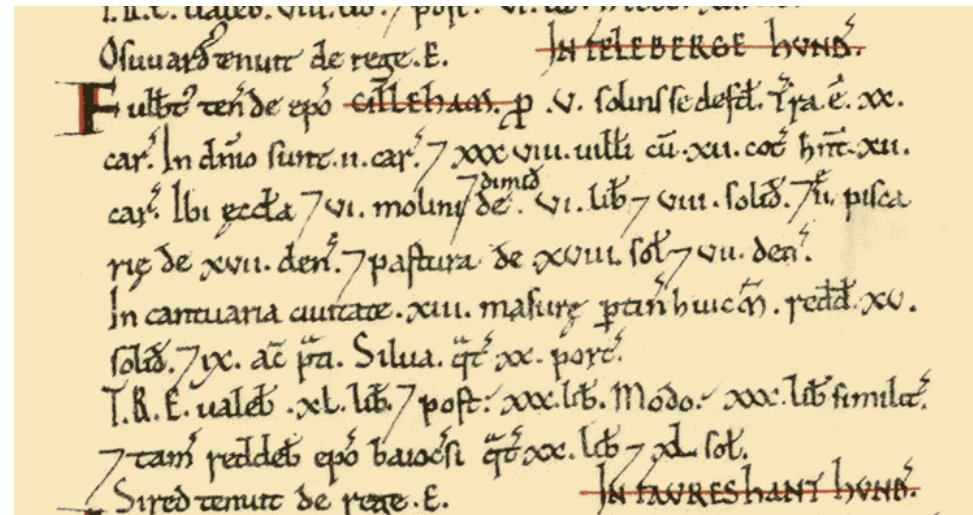 T.R.E. ualeb. viii. lib. ⁊ post. vi. lib.
Osuuard tenuit de rege .E. IN FELEBERGE HUND'.
Fulbt' ten' de epo CILLEHAM. p .v. solins se defd'. T'ra .ē. xx.
car'. In dnio sunt .ii. car'. ⁊ xxxviii. uilli cū .xii. cot' hnt .xii.
car'. Ibi ęccla ⁊ vi. molini ⁊ dimid de . vi. lib ⁊ viii. solid'. ⁊ ii. pisca
rię de xvii. den'. ⁊ pastura de .xviii. sol' ⁊ vii. den'.
In cantuaria ciuitate . xiii. masurę ptin' huic m̄. redd'. xv.
solid'. ⁊ ix. ac' pti. Silua. q't xx. porc'.
T.R.E. ualeb .xl. lib. ⁊ post: xxx. lib. Modo: xxx. lib similit'.
⁊ tam' reddeb epo baioc'si q't xx. lib ⁊ xl. sol'.
Sired tenuit de rege .E. IN FAURESHANT HUND'.